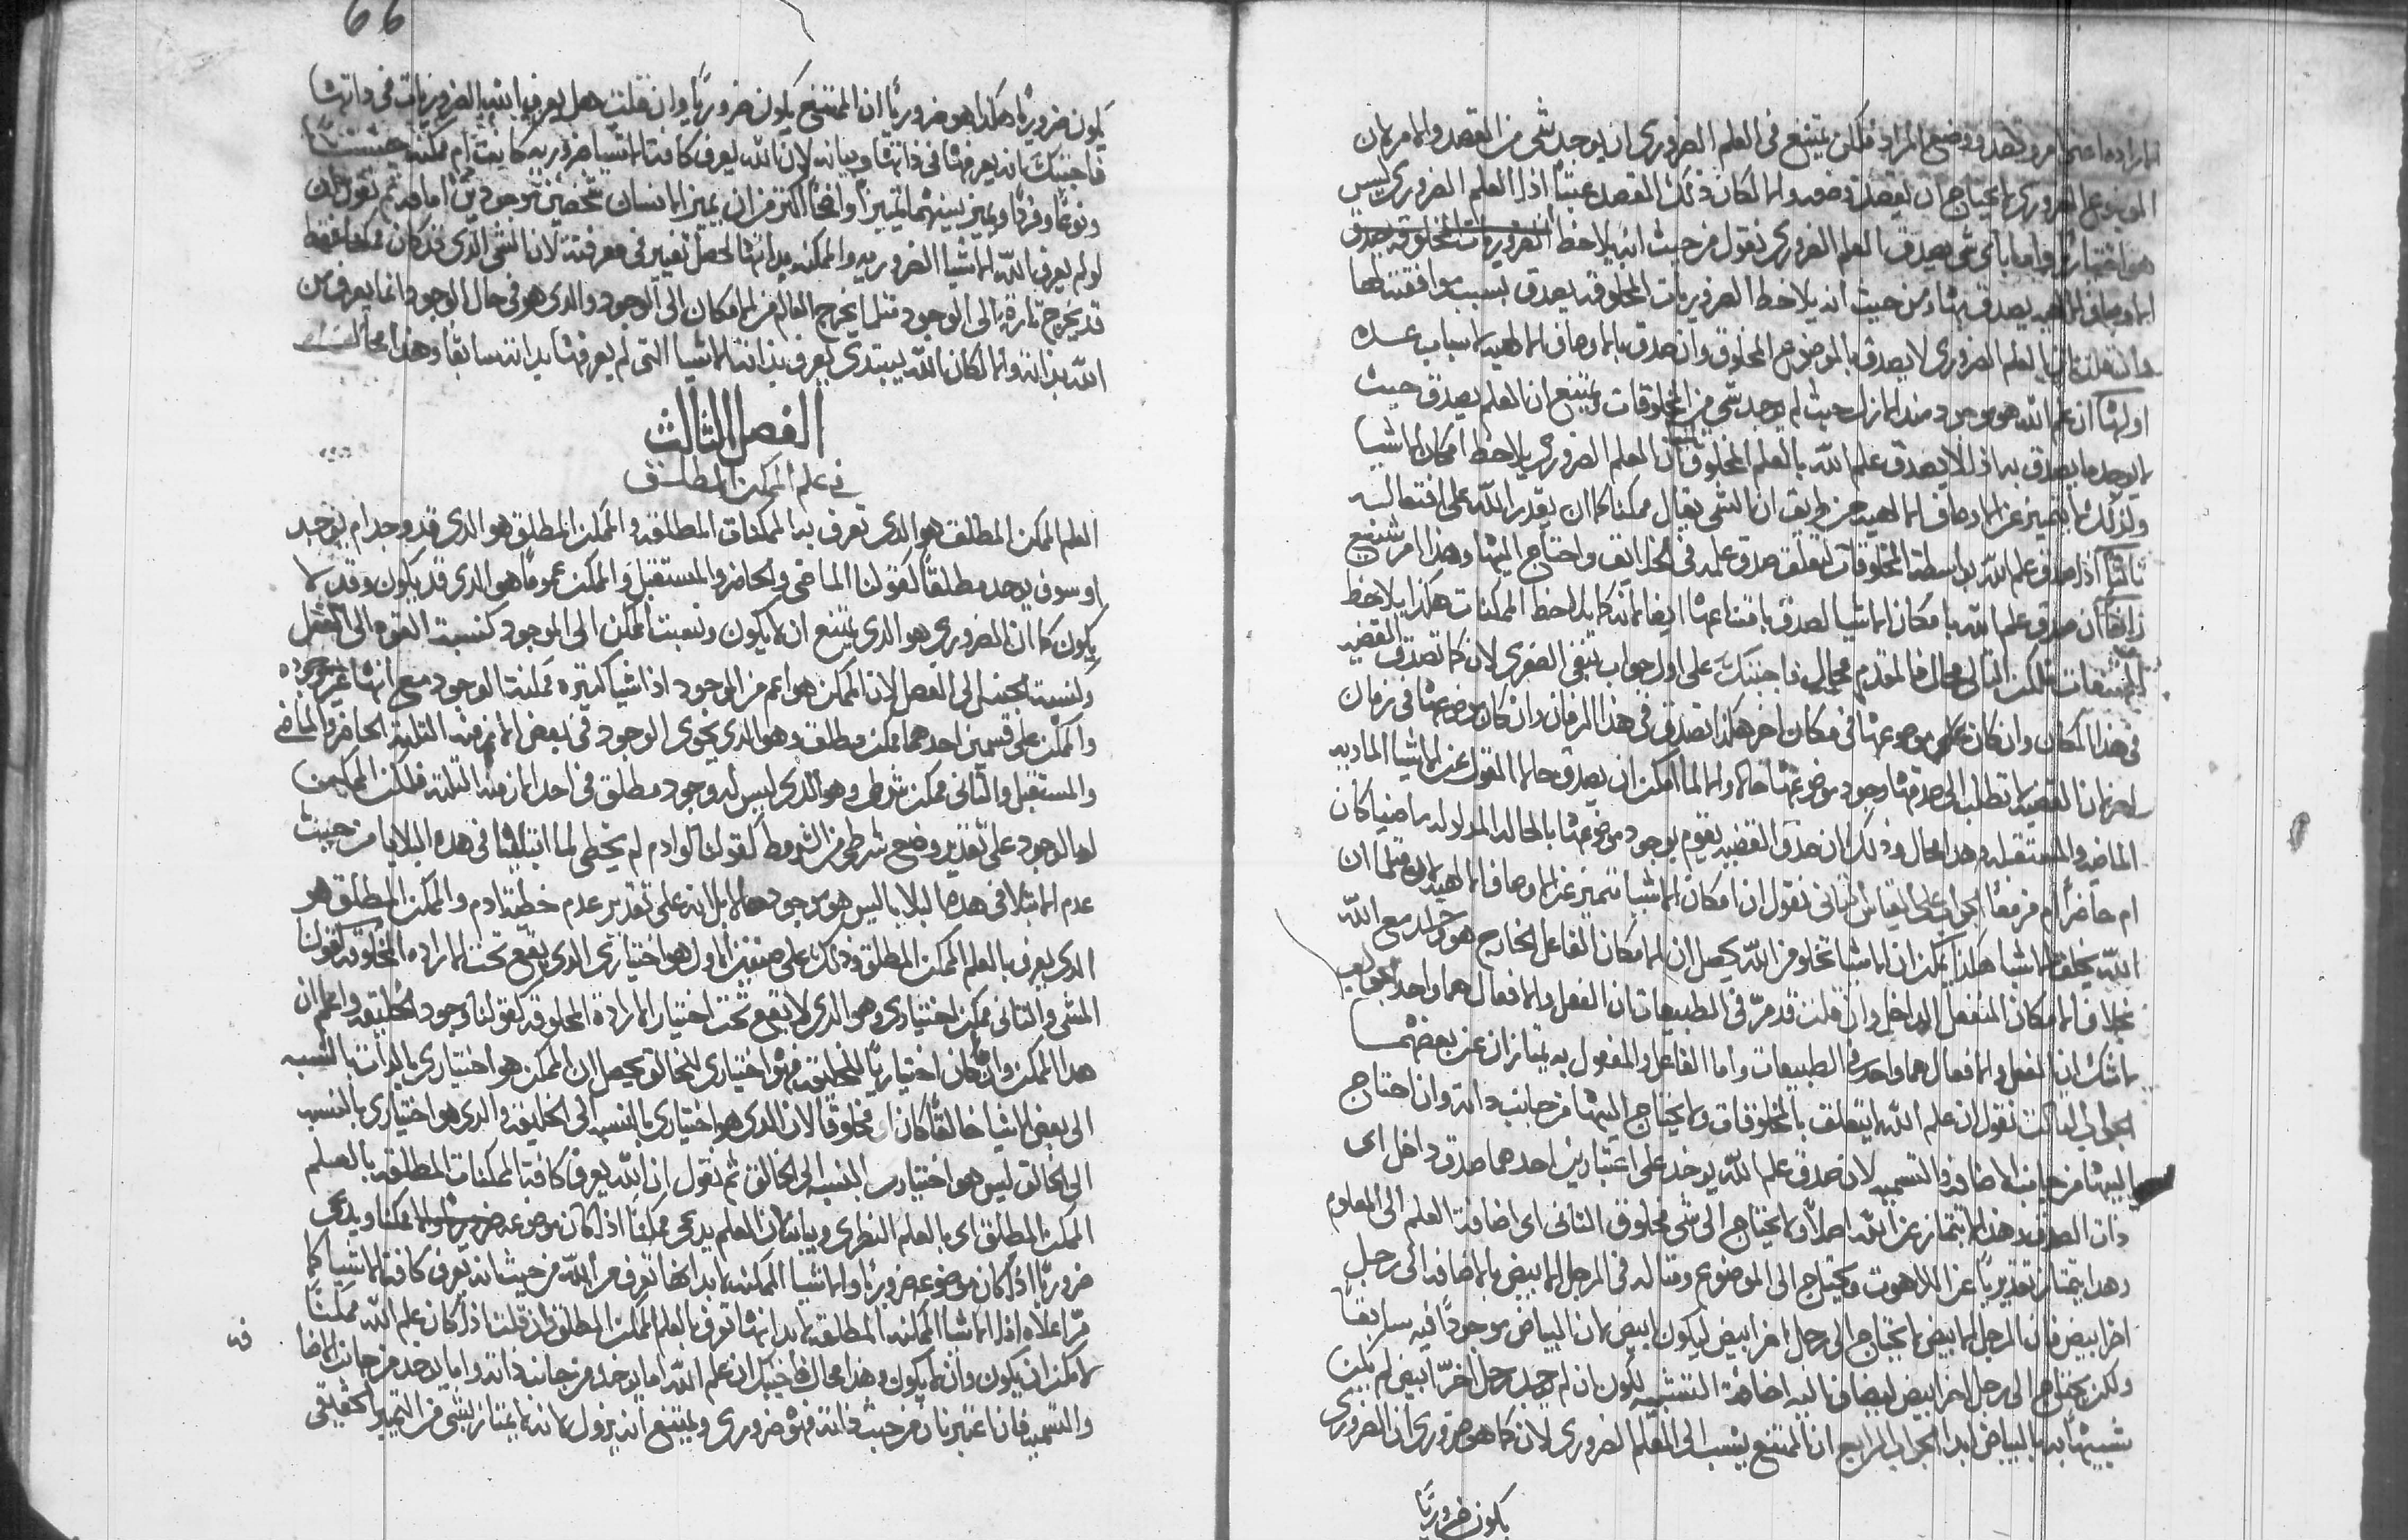 الارادة اعني امر وقصد ووضع المراد فلكن يمتنع في العلم الضروري ان يوجد شي من القصد والامر لان
الموضوع الضروري لا يحتاج ان يقصد وضعه والا لكان ذلك القصد عبثا اذا العلم الضروري ليس
هو اختياريا واما باي شي يصدق العلم الضروري نقول من حيث انه يلاحظ الضروريات المخلوقه يصدق
الاوصاف الالهيه يصدق بها ومن حيث انه يلاحظ الضروريات المخلوقه يصدق بسبب موافقتها لها
العلم الضروري لا يصدق بالموضوع المخلوق وان صدق بالاوصاف الالهيه لاسباب عده
اولها ان علم الله هو موجود منذ الازل حيث لم يوجد شي من المخلوقات ويمتنع ان العلم يصدق حيث
لا يوجد ما يصدق به اذا لا يصدق علم الله بالعلم المخلوق ان العلم الضروري يلاحظ امكان الاشيا
وذلك لا يتميز عن الاوصاف الالهيه من طريق ان الشي يقال ممكنا لما ان يقدر الله على افتعاله
ثالثا اذا صدق علم الله بواسطة المخلوقات لتعلق صدق علمه في الخلايق واحتاج اليها وهذا امر شنيع
رابعا ان صدق علم الله بامكان الاشيا لصدق بامتناعها ايضا لانه كما يلاحظ الممكنات هكذا يلاحظ
الممتنعات فلكن التالي محال فالمقدم محال فاجبتك على اول جواب بنفي الصغرى لان كما تصدق القضيه
في هذا المكان وان كان موضوعها في مكان اخر هكذا تصدق في هذا الزمان وان كان موضوعها في زمان
اخر لان القضيه لا تطلب الى صدقها وجود موضوعها حالا والا لما امكن ان يصدق حالا القول عن الاشيا الماديه
الماضيه والمستقبله وهذا محال وذلك ان صدق القضيه يقوم بوجود موضوعها بالحاله المدلوله ماضيا كان
ام حاضرا ام مزمعا الجواب على القياس الثاني نقول ان امكان الاشيا تتميز عن الاوصاف الالهيه لان مثلما ان
الله يخلق الاشيا هكذا يمكن ان الاشيا تخلو من الله يحصل ان الامكان الفاعل الخارج هو واحد مع الله
بخلاف الامكان المنفعل الداخل وان قلت قد مر في الطبيعيات ان الفعل والانفعال هما واحد اجبك
لا شك ان الفعل والانفعال هما واحد في الطبيعيات واما الفاعل والمفعول به يمتازان عن بعضهما
الجواب الثالث نقول ان علم الله لا يتعلق بالمخلوقات ولا يحتاج اليها من جانب ذاته وان احتاج
اليها من جانب الاضافه والتسميه لان صدق علم الله يوخذ على اعتبارين احدهما صدق داخل اي
ذات الصدق وهذا لا يمتاز عن الله اصلا ولا يحتاج الى شي مخلوق الثاني اي اضافة العلم الى المعلوم
وهذا يمتاز تقديريا عن اللاهوت ويحتاج الى الموضوع ومثاله في الرجل الابيض بالاضافه الى رجل
اخر ابيض فان الرجل الابيض لا يحتاج الى رجل اخر ابيض ليكون ابيض لان البياض موجود فيه سابقا
ولكن يحتاج الى رجل اخر ابيض ليضاف اليه اضافة التشبيه لكون ان لم يوجد رجل اخر ابيض لم يكن
شبيها به بالبياض ابدا الجواب الرابع ان الممتنع ينسب الى العلم الضروري لان كما هو ضروري ان الضروري
يكون ضروريا
66
يكون ضروريا هكذا هو ضروريا ان الممتنع يكون ضروريا وان قلت هل يعرف الله الضروريات في ذاتها
فاجبتك انه يعرفها في ذاتها وبيانه لان الله يعرف كافة الاشيا ضروريه كانت ام ممكنه جنسا
ونوعا وفردا ويميز بينهما تمييزا واضحا اكثر من ان يميز الانسان شخصين موجودين امامه ثم نقول ان
لو لم يعرف الله الاشيا الضروريه والممكنه بذاتها لحصل تغيير في معرفته لان الشي الذي قد كان ممكنا فقط
قد يخرج تارة الى الوجود مثلما يخرج العالم من الامكان الى الوجود والذي هو في حال الوجود انما يعرف من
الله بذاته والا لكان الله يبتدي يعرف بذاته الاشيا التي لم يعرفها بذاته سابقا وهذا محال
الفصل الثالث
في علم الممكن المطلق
العلم الممكن المطلق هو الذي تعرف به الممكنات المطلقه والممكن المطلق هو الذي قد وجد ام يوجد
او سوف يوجد مطلقا كقولنا الماضي والحاضر والمستقبل والممكن عموما هو الذي قد يكون وقد لا
يكون كما ان الضروري هو الذي يمتنع ان لا يكون ونسبة الممكن الى الموجود كنسبة القوه الى الفعل
ونسبة الجنس الى الفصل لان الممكن هو اعم من الوجود اذ اشيا كثيره ممكنة الوجود مع انها غير موجوده
والممكن على قسمين احدهما ممكن مطلق وهو الذي يحوى الوجود في بعض الازمنه الثلثه الحاضر والماضي
والمستقبل والثاني ممكن شرطي وهو الذي ليس له وجود مطلق في احد الازمنه الثلثه فلكن الممكن
له الوجود على تقدير وضع شرط من الشروط كقولنا لو ادم لم يخطي لما ابتلينا في هذه البلايا من حيث
عدم الابتلا في هذه البلايا ليس هو موجود حالا بل انه على تقدير عدم خطية ادم والممكن المطلق هو
الذي يعرف بالعلم الممكن المطلق وذلك على صنفين الاول هو اختياري الذي يقع تحت الارادة المخلوقه كقولنا
المشي والثاني ممكن لا اختياري وهو الذي لا يقع تحت اختيار الارادة المخلوقه كقولنا وجود الخليقه واعلم ان
هذا الممكن وان كان لا اختياريا للخليقه فهو اختياري للخالق يحصل ان الممكن هو اختياري بالذات بالنسبه
الى بعض الاشيا خالقا كان او مخلوقا لان الذي هو اختياري بالنسبه الى الخليقه والذي هو اختياري بالنسبه
الى الخالق ليس هو اختياري بالنسبه الى الخالق ثم نقول ان الله يعرف كافة الممكنات المطلقه بالعلم
الممكن المطلق اي بالعلم النظري وبيانه لان العلم يدعى ممكنا اذا كان موضوعه ممكنا ويدعى
ضروريا اذا كان موضوعه ضروريا والاشيا الممكنه بذاتها تعرف من الله من حيث انه يعرف كافة الاشيا كما
مر اعلاه اذا الاشيا الممكنه المطلقه بذاتها تعرف بالعلم الممكن المطلق وان قلت اذا كان علم الله ممكنا
لامكن ان يكون وان لا يكون وهذا محال فاجبتك ان علم الله اما يوخذ من جانب ذاته واما يوخذ من جانب الاضا
فه
والتسميه فان اعتبرناه من حيث ذاته فهو ضروري ويمتنع انه يزول لانه لا يمتاز بشي من التمييز الحقيقي